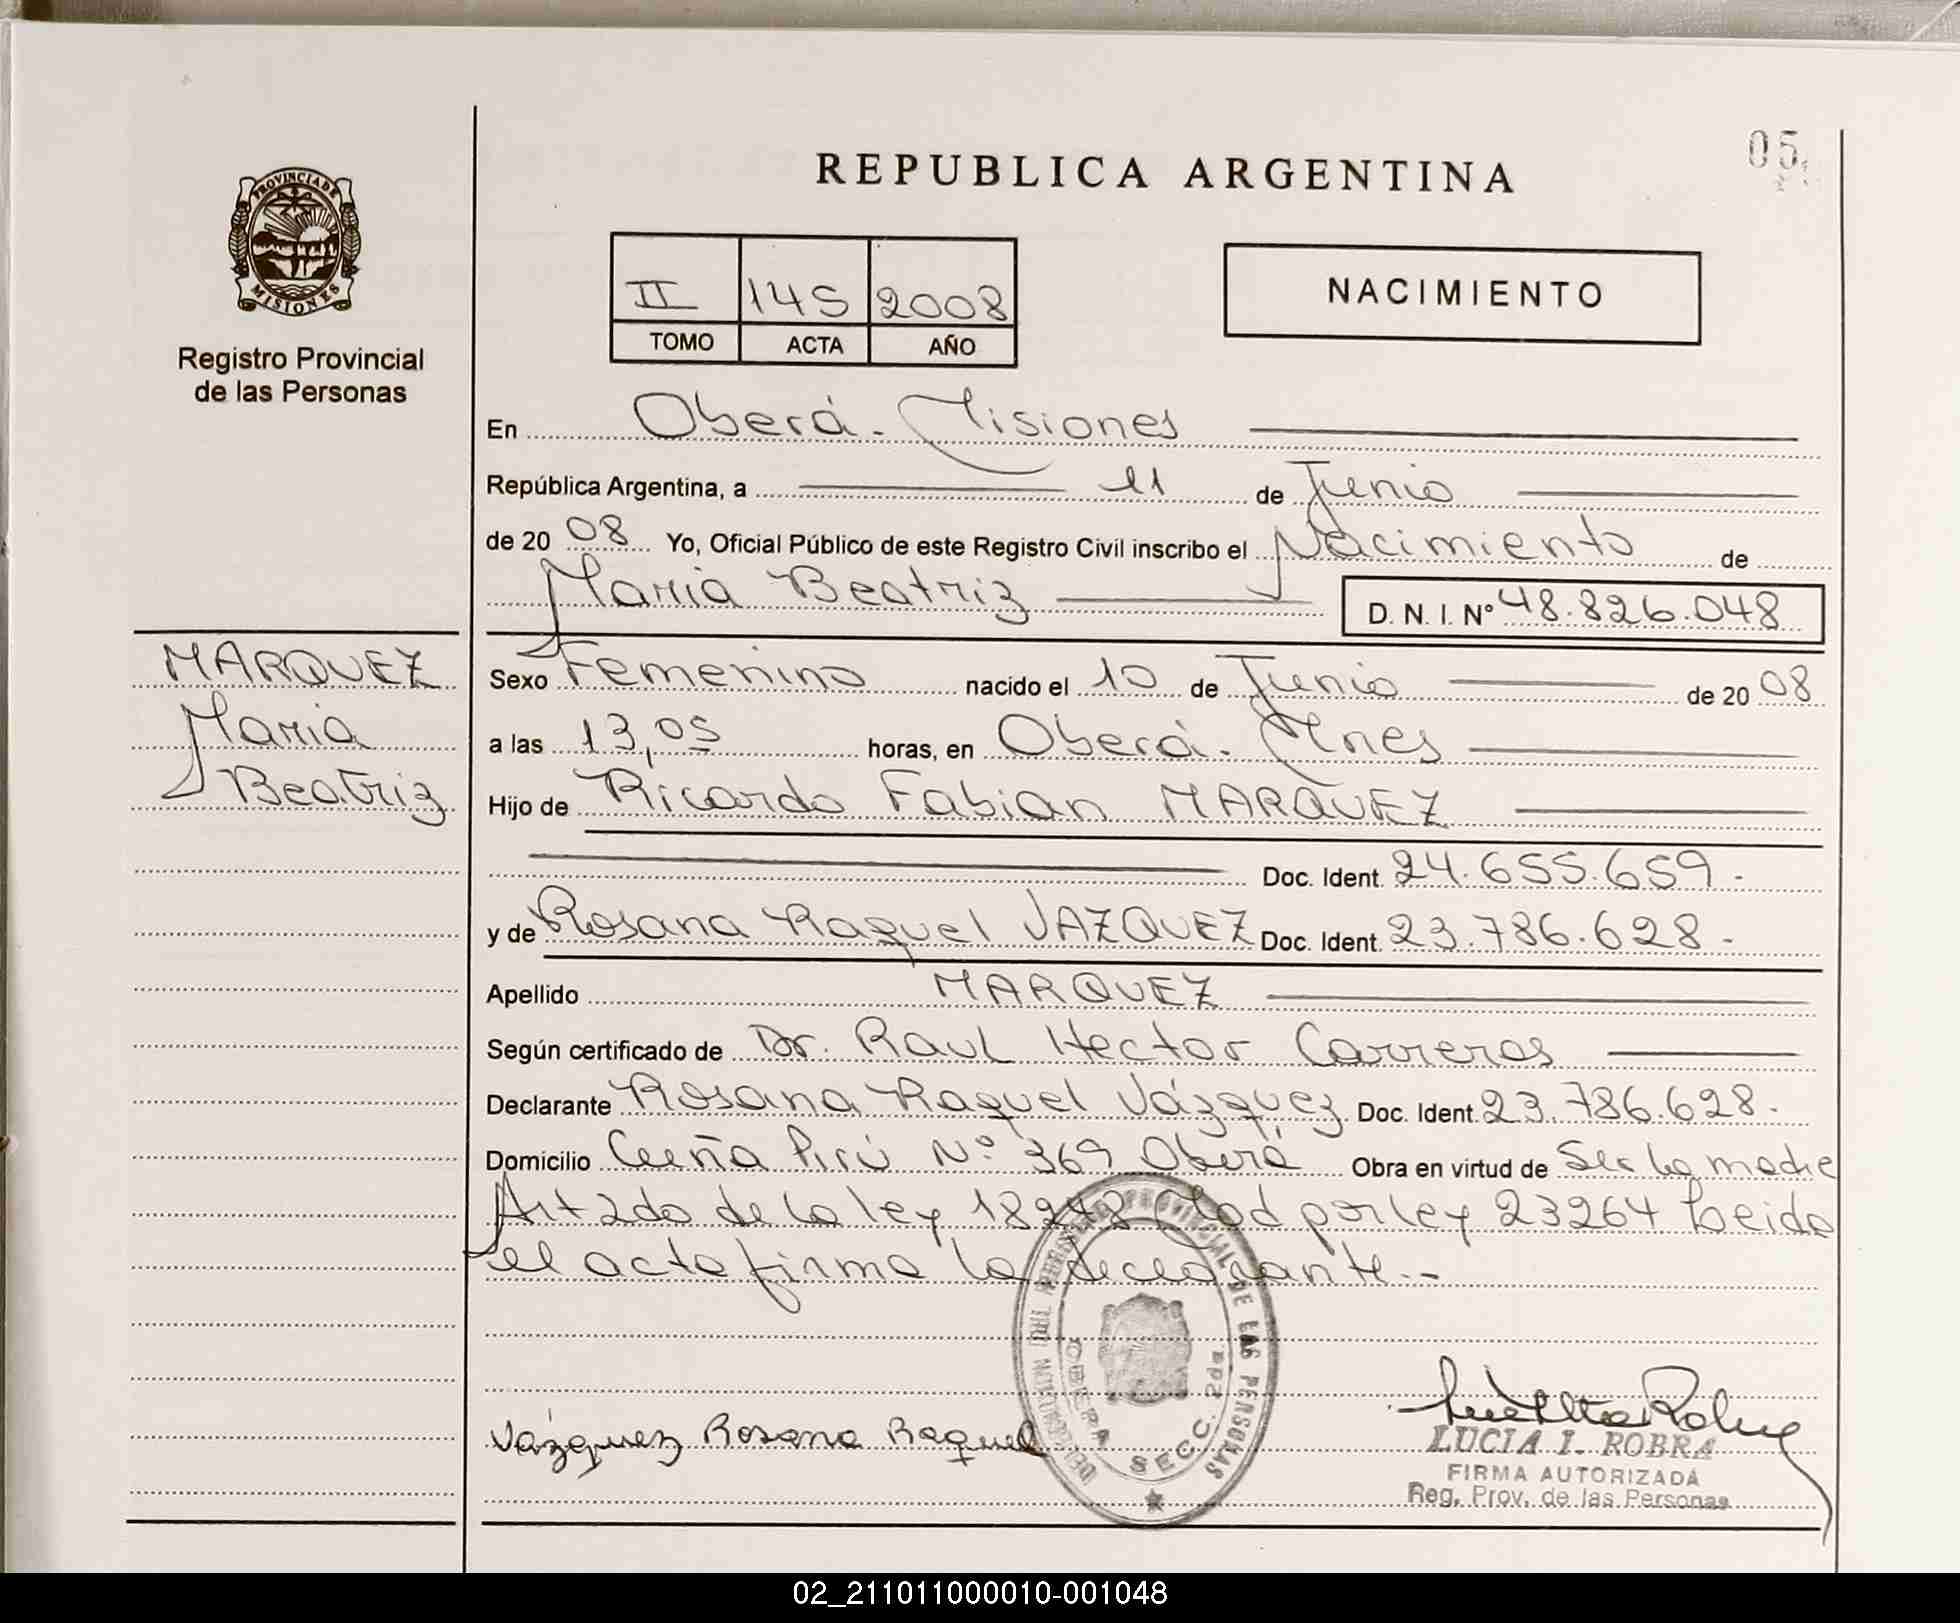 REPUBLICA ARGENTINA
05
PROVINCIA DE
MISIONES
Registro Provincial
de las Personas
II 145 2008
TOMO ACTA AÑO
NACIMIENTO
En Oberá - Misiones
República Argentina, a 11 de Junio
de 2008 Yo, Oficial Público de este Registro Civil inscribo el Nacimiento de
Maria Beatriz D. N. I. Nº 48.826.048
MARQUEZ
Maria
Beatriz
Sexo Femenino nacido el 10 de Junio de 2008
a las 13,05 horas, en Oberá - Mnes
Hijo de Ricardo Fabian MARQUEZ
Doc. Ident. 24.655.659.-
y de Rosana Raquel VAZQUEZ Doc. Ident. 23.786.628.-
Apellido MARQUEZ
Según certificado de Dr. Raul Hector Carreras
Declarante Rosana Raquel Vázquez Doc. Ident. 23.786.628.
Domicilio Cuña Pirú Nº 369 Oberá Obra en virtud de Ser la madre
Art 2do de la ley 18248 Mod por ley 23264 Leida
el acta firma la declarante.-
REGISTRO PROVINCIAL DE LAS PERSONAS
OBERA SECC. 2da.
Vázquez Rosana Raquel
LUCIA I. ROBRA
FIRMA AUTORIZADA
Reg. Prov. de las Personas
02_211011000010-001048